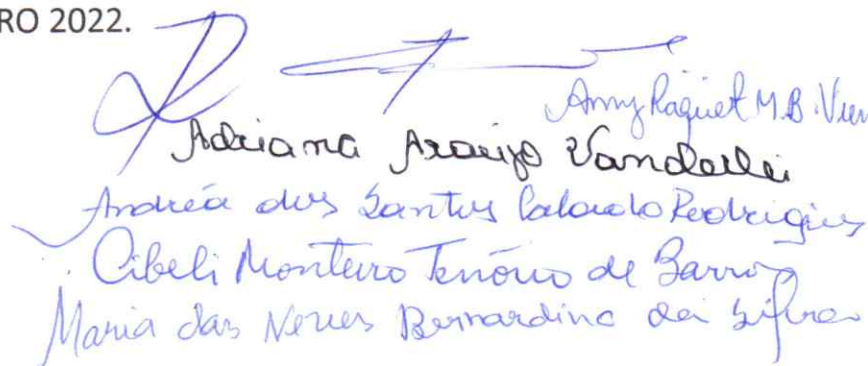 RO 2022.
Amy Raquel M.B. Vier
Adriana Araújo Vanderlei
Andréa dos Santos Calado Rodrigues
Cibeli Monteiro Tenório de Barros
Maria das Neves Bernardino da Silva